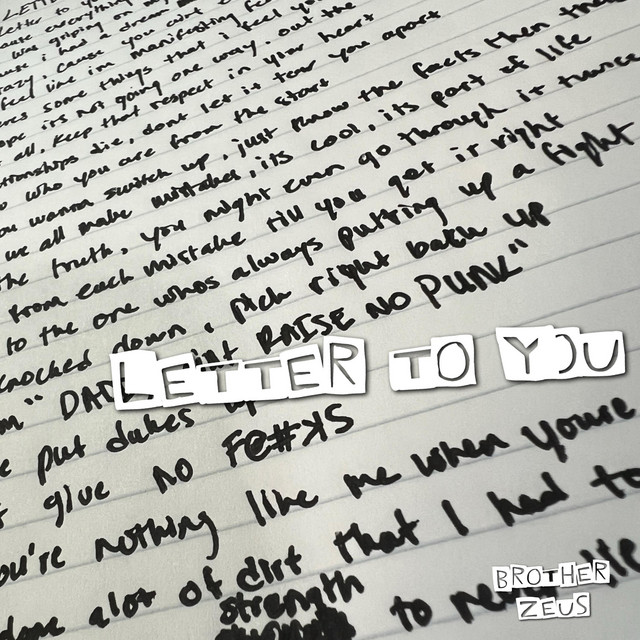 LETTE
letter to y
eate everything
was griping or my
ause i had a dream
razy, cause you
feel like im manifesting
ares some things that i feel you
ope its not going one way, out the
all, keep that respect in your heart
ationships die, dont let it tear you apart
o who you are from the start
ou wanna switch up, just know the facts then
we all make mistakes, its cool, its part of life
the truth, you might even go through it twice
from each mistake till you get it right
to the one whos always putting up a fight
knocked down, pick right back up
m "DADD AINT RAISE NO PUNK"
LETTER TO YOU
e put dukes up
t give no F@#KS
ou're nothing like me when youre
done alot of dirt that I had to
strength to life
BROTHER
ZEUS